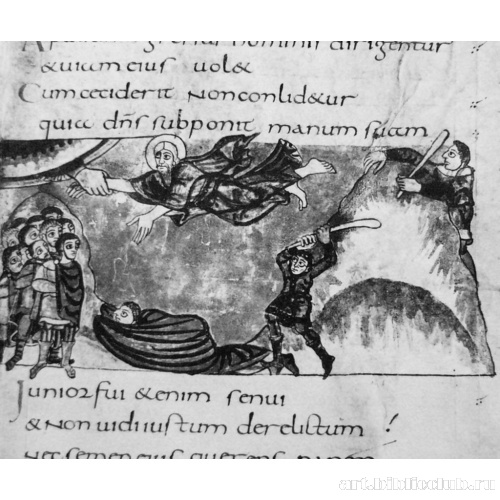 gressus hominis dirigentur
&uiam eius uol&
Cum ceciderit Non conlid&ur
quia dns subponit manum suam
Iunior fui &enim senui
&Non uidi iustum derelictum !
art.biblioclub.ru